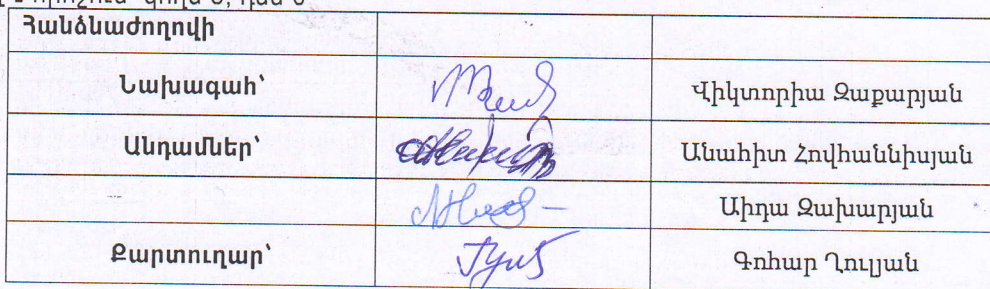 Հանձնաժողովի
Նախագահ՝ Վիկտորիա Զաքարյան
Անդամներ՝ Անահիտ Հովհաննիսյան
Աիդա Զախարյան
Քարտուղար՝ Գոհար Ղուլյան